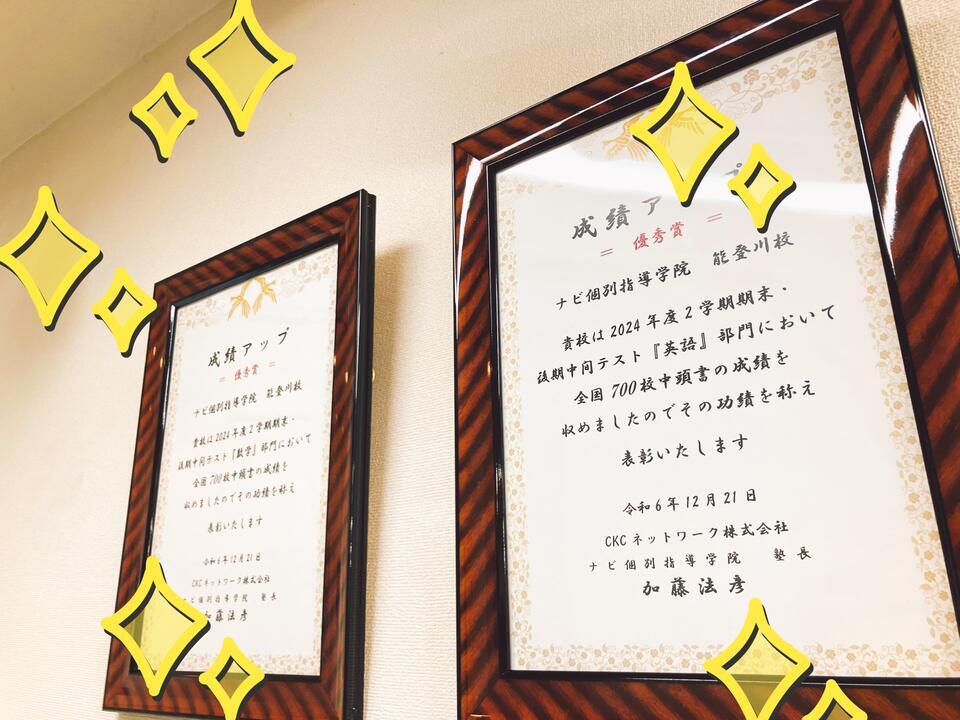 成績アップ
= 優秀賞 =
ナビ個別指導学院 能登川校
貴校は2024年度2学期期末・
後期中間テスト『数学』部門において
全国700校中頭書の成績を
収めましたのでその功績を称え
表彰いたします
令和6年12月21日
CKCネットワーク株式会社
ナビ個別指導学院 塾長
加藤法彦
成績ア プ
= 優秀賞 =
ナビ個別指導学院 能登川校
貴校は2024年度2学期期末・
後期中間テスト『英語』部門において
全国700校中頭書の成績を
収めましたのでその功績を称え
表彰いたします
令和6年12月21日
CKCネットワーク株式会社
ナビ個別指導学院 塾長
加藤法彦